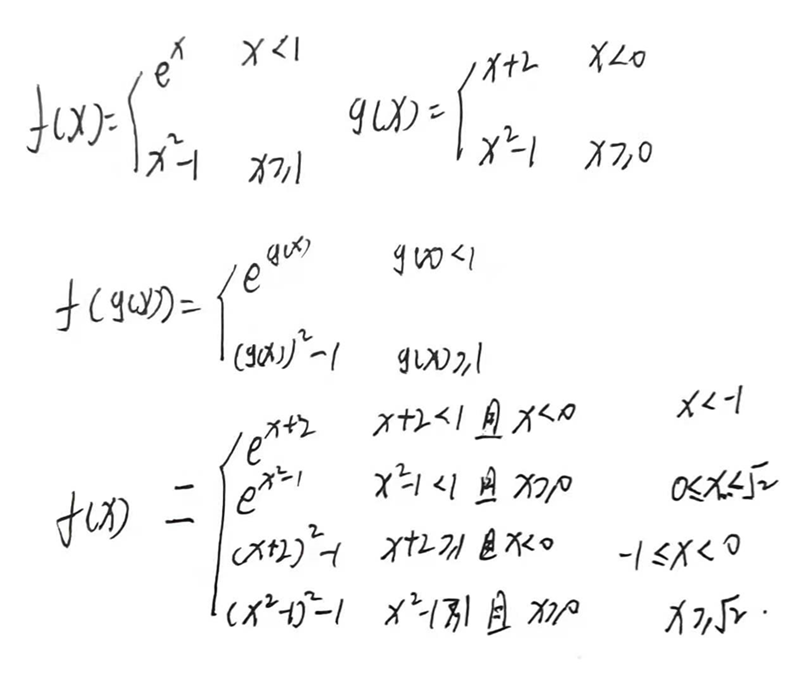 f(x)={ e^x x<1 g(x)={ x+2 x<0
x²-1 x≥1 x²-1 x≥0
f(g(x))={ e^{g(x)} g(x)<1
(g(x))²-1 g(x)≥1
f(x) = { e^{x+2} x+2<1 且 x<0 x<-1
e^{x²-1} x²-1<1 且 x≥0 0≤x<√2
(x+2)²-1 x+2≥1 且 x<0 -1≤x<0
(x²-1)²-1 x²-1≥1 且 x≥0 x≥√2.